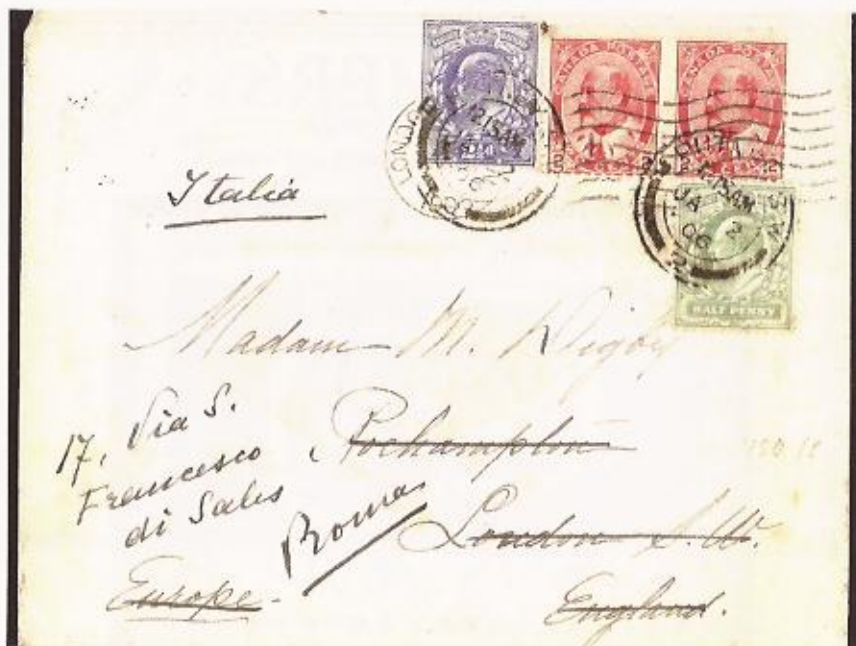 CANADA POSTAGE
CANADA POSTAGE
2 CENTS 2
2 CENTS 2
12.15 AM
JA 2
06
HALF PENNY
Italia
Madam M. Digby
17, Via S.
Francesco
di Sales
Roehampton
Roma
London S.W.
Europe.
England.